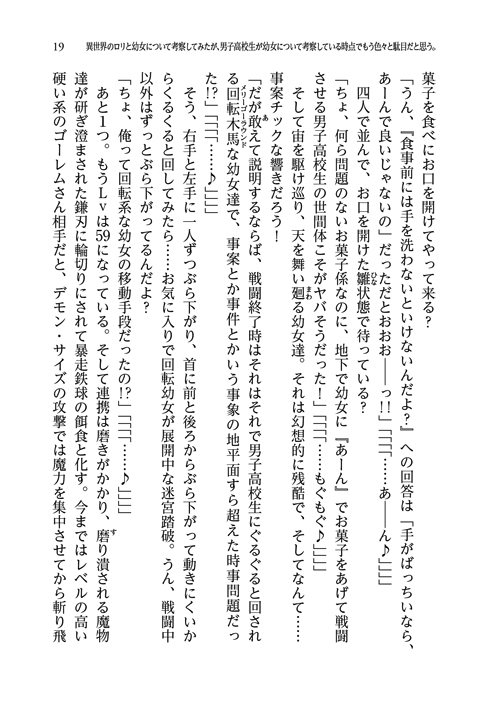 19
異世界のロリと幼女について考察してみたが、男子高校生が幼女について考察している時点でもう色々と駄目だと思う。
菓子を食べにお口を開けてやって来る？
「うん、『食事前には手を洗わないといけないんだよ？』への回答は「手がばっちいなら、
あーんで良いじゃないの」だっただとおおお――っ!!」「「「……あ――ん♪」」」
四人で並んで、お口を開けた雛状態で待っている？
ひな
「ちょ、何ら問題のないお菓子係なのに、地下で幼女に『あーん』でお菓子をあげて戦闘
させる男子高校生の世間体こそがヤバそうだった！」「「「……もぐもぐ♪」」」
そして宙を駆け巡り、天を舞い廻る幼女達。それは幻想的に残酷で、そしてなんて……
まわ
事案チックな響きだろう！
「だが敢えて説明するならば、戦闘終了時はそれはそれで男子高校生にぐるぐると回され
あ
る回転木馬な幼女達で、事案とか事件とかいう事象の地平面すら超えた時事問題だっ
メリーゴーラウンド
た!?」「「「……♪」」」
そう、右手と左手に一人ずつぶら下がり、首に前と後ろからぶら下がって動きにくいか
らくるくると回してみたら……お気に入りで回転幼女が展開中な迷宮踏破。うん、戦闘中
以外はずっとぶら下がってるんだよ？
「ちょ、俺って回転系な幼女の移動手段だったの!?」「「「……♪」」」
あと１つ。もうＬｖは59になっている。そして連携は磨きがかかり、磨り潰される魔物
す
達が研ぎ澄まされた鎌刃に輪切りにされて暴走鉄球の餌食と化す。今まではレベルの高い
硬い系のゴーレムさん相手だと、デモン・サイズの攻撃では魔力を集中させてから斬り飛